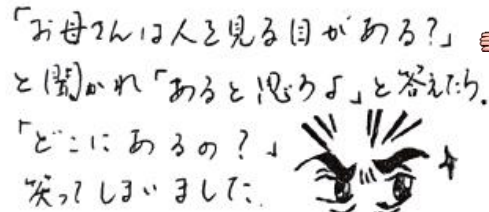 「お母さんは人を見る目がある?」
と聞かれ「あると思うよ」と答えたら、
「どこにあるの?」
笑ってしまいました。